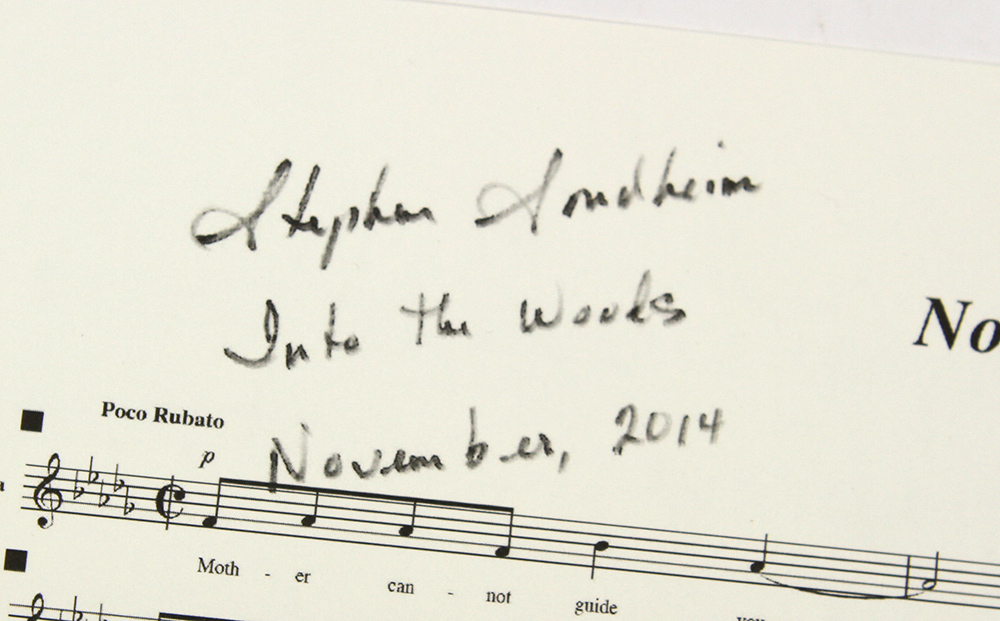 Stephen Sondheim
Into the Woods
No
Poco Rubato
November, 2014
p
Moth - er can - not guide you